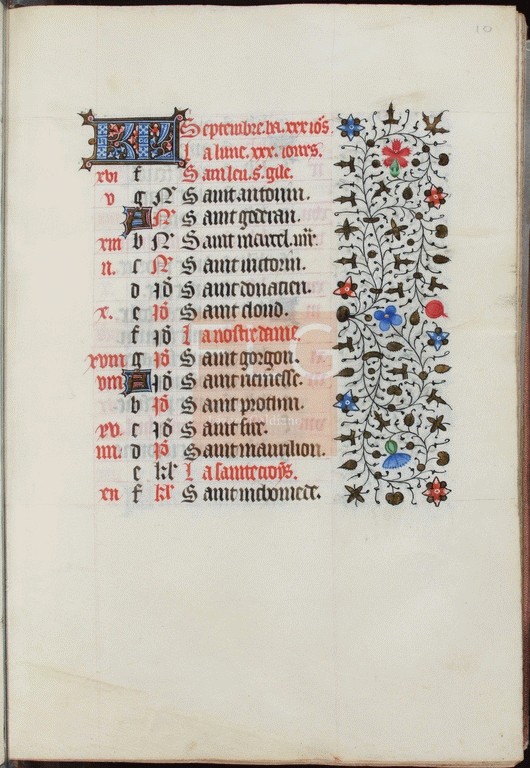 10
KL Septembre. ha. xxx iors.
La lune. xxx. iours.
xvi f Saint leu. s. gile.
v g N Saint antonin.
A N Saint godran.
xiii b N Saint marcel. iiii.
ii. c N Saint victorin.
d id Saint donacien.
x. e id Saint cloud.
f id La nostre dame
xviii g id Saint gorgon.
viii A id Saint
b id Saint prothin.
xv. c id Saint
iiii. d id Saint maurilion.
e kl La sainte crois.
xii f kl Saint nichomede.